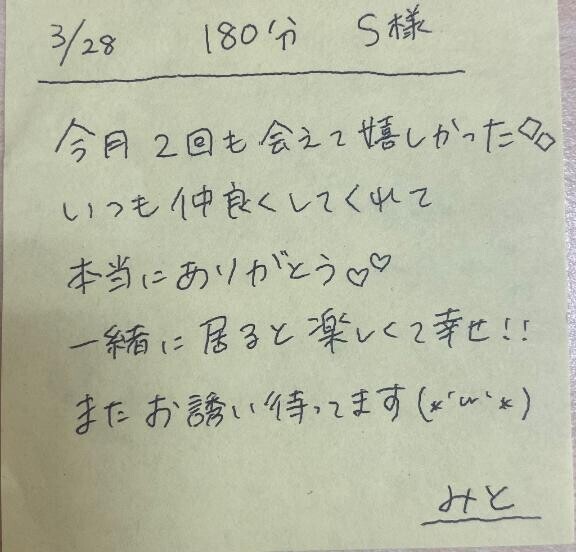 3/28 180分 S様
今月2回も会えて嬉しかった◇◇
いつも仲良くしてくれて
本当にありがとう♡♡
一緒に居ると楽しくて幸せ!!
またお誘い待ってます(*´ω`*)
みと